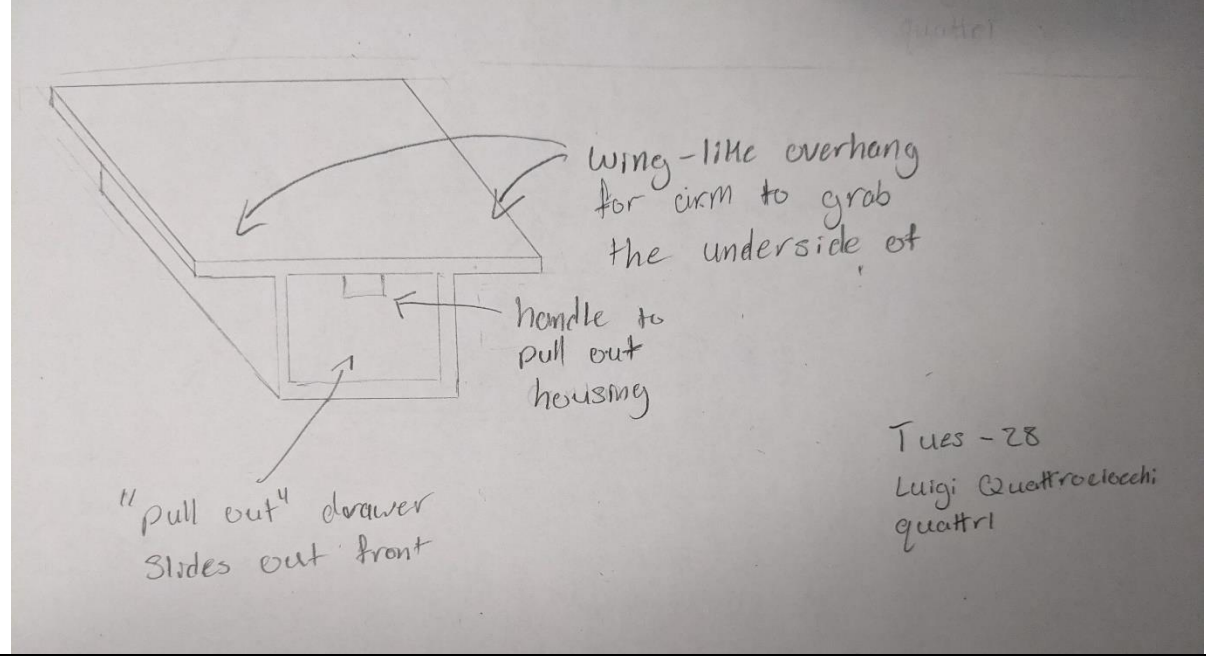 quattrl
wing-like overhang
for arm to grab
the underside of
handle to
pull out
housing
"pull out" drawer
slides out front
Tues - 28
Luigi Quattrociocchi
quattrl